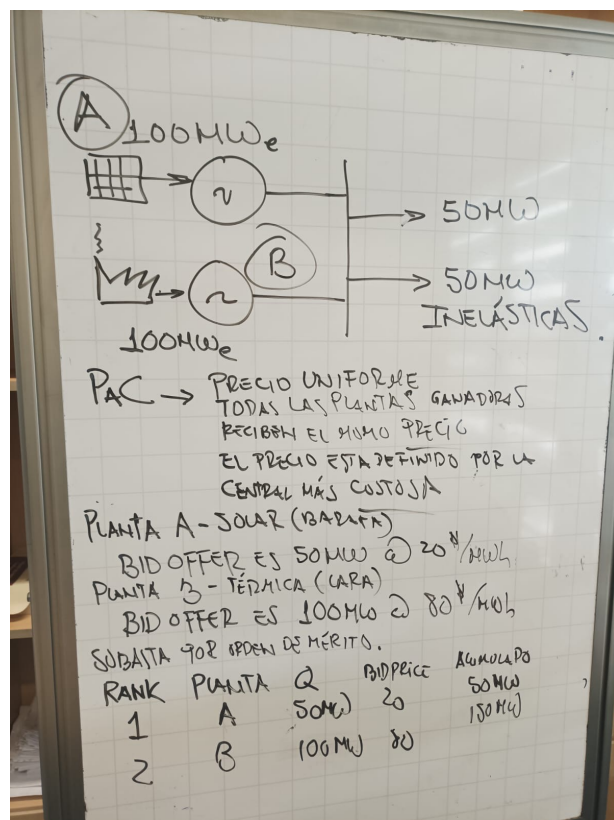 A
100MWe
50MW
B
50MW
INELÁSTICAS.
100MWe
PAC → PRECIO UNIFORME
TODAS LAS PLANTAS GANADORAS
RECIBEN EL MISMO PRECIO
EL PRECIO ESTA DEFINIDO POR LA
CENTRAL MÁS COSTOSA
PLANTA A - SOLAR (BARATA)
BID OFFER ES 50MW @ 20 /MWh
PLANTA B - TÉRMICA (CARA)
BID OFFER ES 100MW @ 80 /MWh
SUBASTA POR ORDEN DE MÉRITO.
RANK PLANTA Q BIDPRICE ACUMULADO
1 A 50MW 20 50MW
2 B 100MW 80 150MW